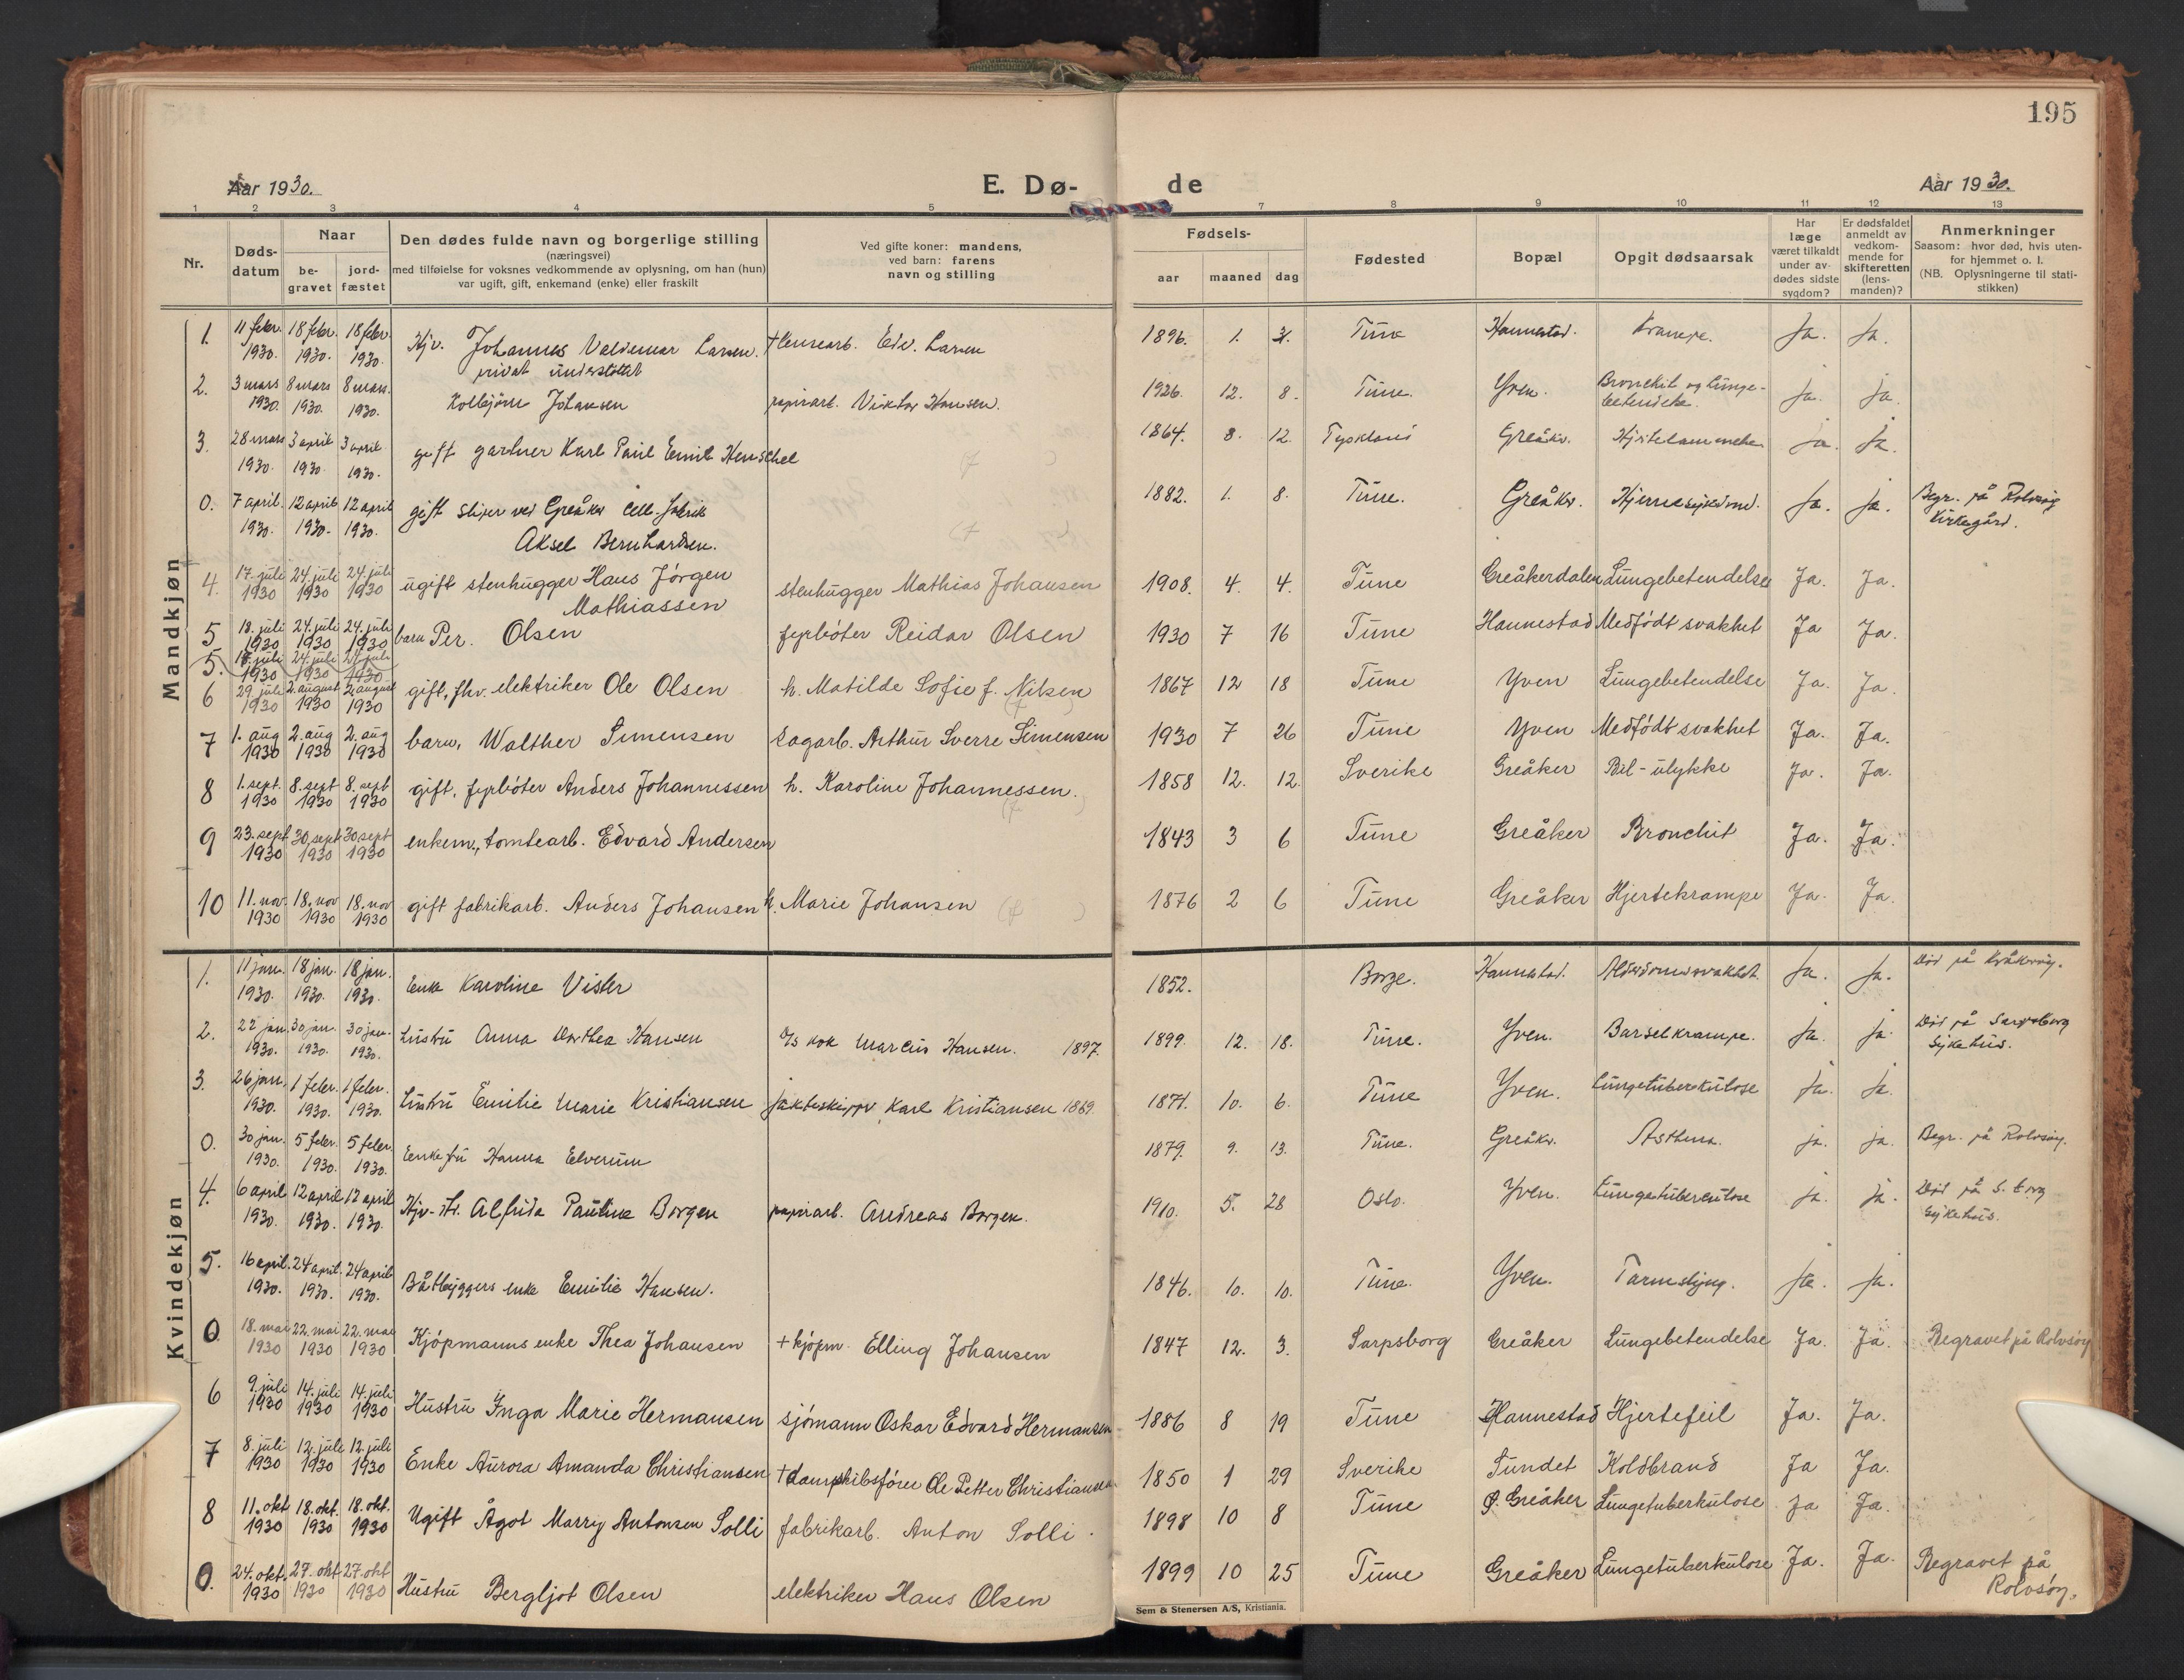 195
Aar 1930.
E. Dø-
de
Aar 1930.
1 2 3 4 5 7 8 9 10 11 12 13
Nr.
Døds-
datum
Naar
be-
gravet
jord-
fæstet
Den dødes fulde navn og borgerlige stilling
(næringsvei)
med tilføielse for voksnes vedkommende av oplysning, om han (hun)
var ugift, gift, enkemand (enke) eller fraskilt
Ved gifte koner: mandens,
ved barn: farens
navn og stilling
Fødsels-
aar maaned dag
Fødested
Bopæl
Opgit dødsaarsak
Har
læge
været tilkaldt
under av-
dødes sidste
sygdom?
Er dødsfaldet
anmeldt av
vedkom-
mende for
skifteretten
(lens-
manden)?
Anmerkninger
Saasom: hvor død, hvis uten-
for hjemmet o. l.
(NB. Oplysningerne til stati-
stikken)
Mandkjøn
1. 11 febr. 1930. 18 febr. 1930. 18 febr. 1930. Hjv. Johannes Valdemar Larsen. † lensearb. Edv. Larsen 1896. 1. Tune Hannestad. Krampe. Ja. Ja.
privat understøttet
2. 3 mars 1930. 8 mars 1930. 8 mars. 1930. Kolbjörn Johansen papirarb. Viktor Hansen. 1926. 12. 8. Tune. Yven. Bronchit og lunge-
betendelse. Ja. Ja.
3. 28 mars 1930. 3 april 1930. 3 april 1930. gift gartner Karl Paul Emil Henschel 1864. 8. 12. Tyskland Greåker. Hjertelammelse Ja. Ja.
0. 7 april. 1930. 12 april 1930. 12 april 1930. gift sliper ved Greåker Cell. fabrik
Aksel Bernhardsen. 1882. 1. 8. Tune. Greåker. Hjernesykdom. Ja. Ja. Begr. på Rolvsøy
Kirkegård.
4. 17. juli 1930 24. juli 1930 24. juli 1930 ugift stenhugger Hans Jörgen
Mathiassen stenhugger Mathias Johansen 1908. 4. 4. Tune Greåkerdalen Lungebetendelse Ja. Ja.
5 18. juli 1930 24. juli 1930 24. juli 1930 barn Per. Olsen fyrböter Reidar Olsen 1930 7 16 Tune Hannestad Medfödt svakhet Ja Ja.
5. 18. juli 1930 24. juli 1930 24. juli 1930
6 29. juli 1930 2. august 1930 2. august 1930 gift, fhv. elektriker Ole Olsen h. Matilde Sofie f. Nilsen 1867 12 18 Tune Yven Lungebetendelse Ja. Ja.
7 1. aug 1930 2. aug 1930 2. aug 1930 barn, Walther Simensen Sagarb. Arthur Sverre Simensen 1930 7 26 Tune Yven Medfödt svakhet Ja. Ja.
8 1. sept. 1930 8. sept 1930 8. sept 1930 gift, fyrböter Anders Johannessen h. Karoline Johannessen. 1858 12. 12. Sverike Greåker Bil-ulykke Ja. Ja.
9 23. sept 1930 30. sept 1930 30. sept 1930 enkem., tomtearb. Edvard Andersen 1843 3 6 Tune Greåker Bronchit Ja. Ja.
10 11. nov. 1930 18. nov 1930 18. nov 1930 gift fabrikarb. Anders Johansen h. Marie Johansen 1876 2 6 Tune Greåker Hjertekrampe Ja. Ja.
Kvindekjøn
1. 11 jan. 1930. 18 jan. 1930. 18 jan. 1930. Enke Karoline Vister 1852. Borge. Hannestad. Alderdomssvakhet. Ja. Ja. Död på Kråkerøy.
2. 22 jan 1930. 30 jan. 1930. 30 jan. 1930. Hustru Anna Dorthea Hansen d/s kok Marcus Hansen. 1897. 1899. 12. 18. Tune. Yven. Barselkrampe. Ja. Ja. Död på Sarpsborg
Sykehus.
3. 26 jan. 1930. 1 febr. 1930. 1 febr. 1930. Hustru Emilie Marie Kristiansen jakteskipper Karl Kristiansen 1869. 1871. 10. 6. Tune Yven. Lungetuberkulose Ja. Ja.
0. 30 jan. 1930. 5 febr. 1930. 5 febr. 1930. Enkefru Hanna Elverum 1879. 9. 13. Tune. Greåker. Asthma. ja. ja. Begr. på Rolvsøy.
4. 6 april 1930. 12 april 1930. 12 april 1930. Hjv-dtr. Alfrida Pauline Borgen papirarb. Andreas Borgen. 1910. 5. 28 Oslo. Yven. Lungetuberculose ja. ja. Död på S. borg
Sykehus.
5. 16 april. 1930. 24 april. 1930. 24 april 1930. Båtbyggers enke Emilie Hansen. 1846. 10. 10. Tune. Yven. Tarmslyng. Ja. Ja.
0 18. mai 1930 22. mai 1930 22. mai 1930 Kjöpmanns enke Thea Johansen † kjöpm. Elling Johansen 1847 12. 3. Sarpsborg Greåker Lungebetendelse Ja. Ja. Begravet på Rolvsöy
6 9. juli 1930 14. juli 1930 14. juli 1930 Hustru Inga Marie Hermansen sjömann Oskar Edvard Hermansen 1886 8 19 Tune Hannestad Hjertefeil Ja. Ja.
7 8. juli 1930 12. juli 1930 12. juli 1930 Enke Aurora Amanda Christiansen † dampskibsförer Ole Petter Christiansen 1850 1 29 Sverike Sundet Koldbrand Ja Ja.
8 11. okt 1930 18. okt. 1930 18. okt. 1930 Ugift Ågot Marry Antonsen Solli fabrikarb. Anton Solli. 1898 10 8 Tune Ø. Greåker Lungetuberkulose Ja Ja.
0. 24. okt. 1930 27. okt 1930 27. okt 1930 Hustru Bergljot Olsen elektriker Hans Olsen 1899 10 25 Tune Greåker Lungetuberkulose Ja. Ja. Begravet på
Rolvsöy.
Sem & Stenersen A/S, Kristiania.